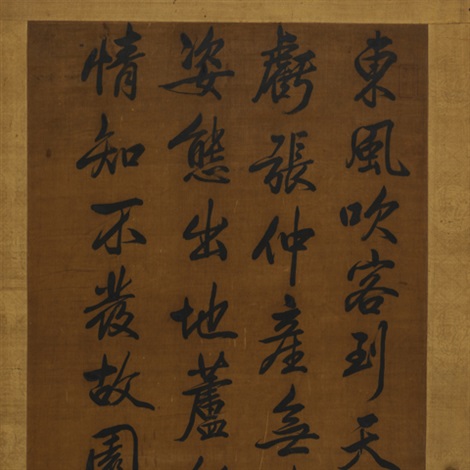 東風吹客到天
虧張仲產無
姿態出地蘆
情知不發故園